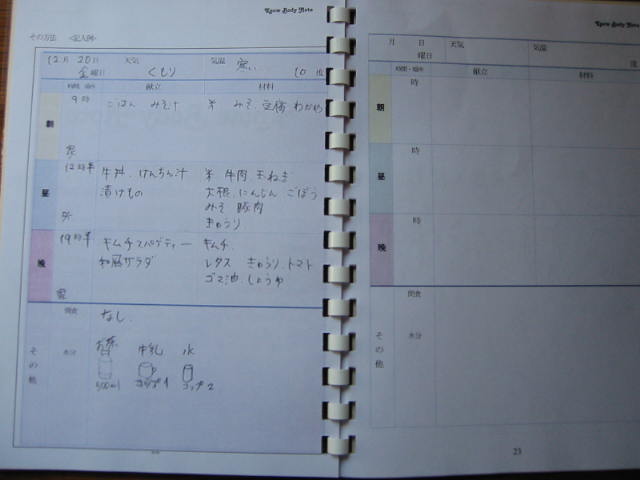 Know Body Note
その方法 <記入例>
12月 20日 天気 気温 寒い
金曜日 くもり 10度
時間・場所 献立 材料
朝 9時 ごはん みそ汁 米 みそ、豆腐 わかめ
家
昼 12時半 牛丼、けんちん汁 米 牛肉 玉ねぎ
漬けもの 大根、にんじん ごぼう
みそ 豚肉
外 きゅうり
晩 19時半 キムチスパゲティー キムチ、
和風サラダ レタス きゅうり、トマト
家 ゴマ油、しょうゆ
間食 なし
その他 水分 お茶 牛乳 水
500ml コップ1 コップ2
Know Body Note
月 日 天気 気温
曜日 度
時間・場所 献立 材料
朝 時
昼 時
晩 時
間食
その他 水分
23